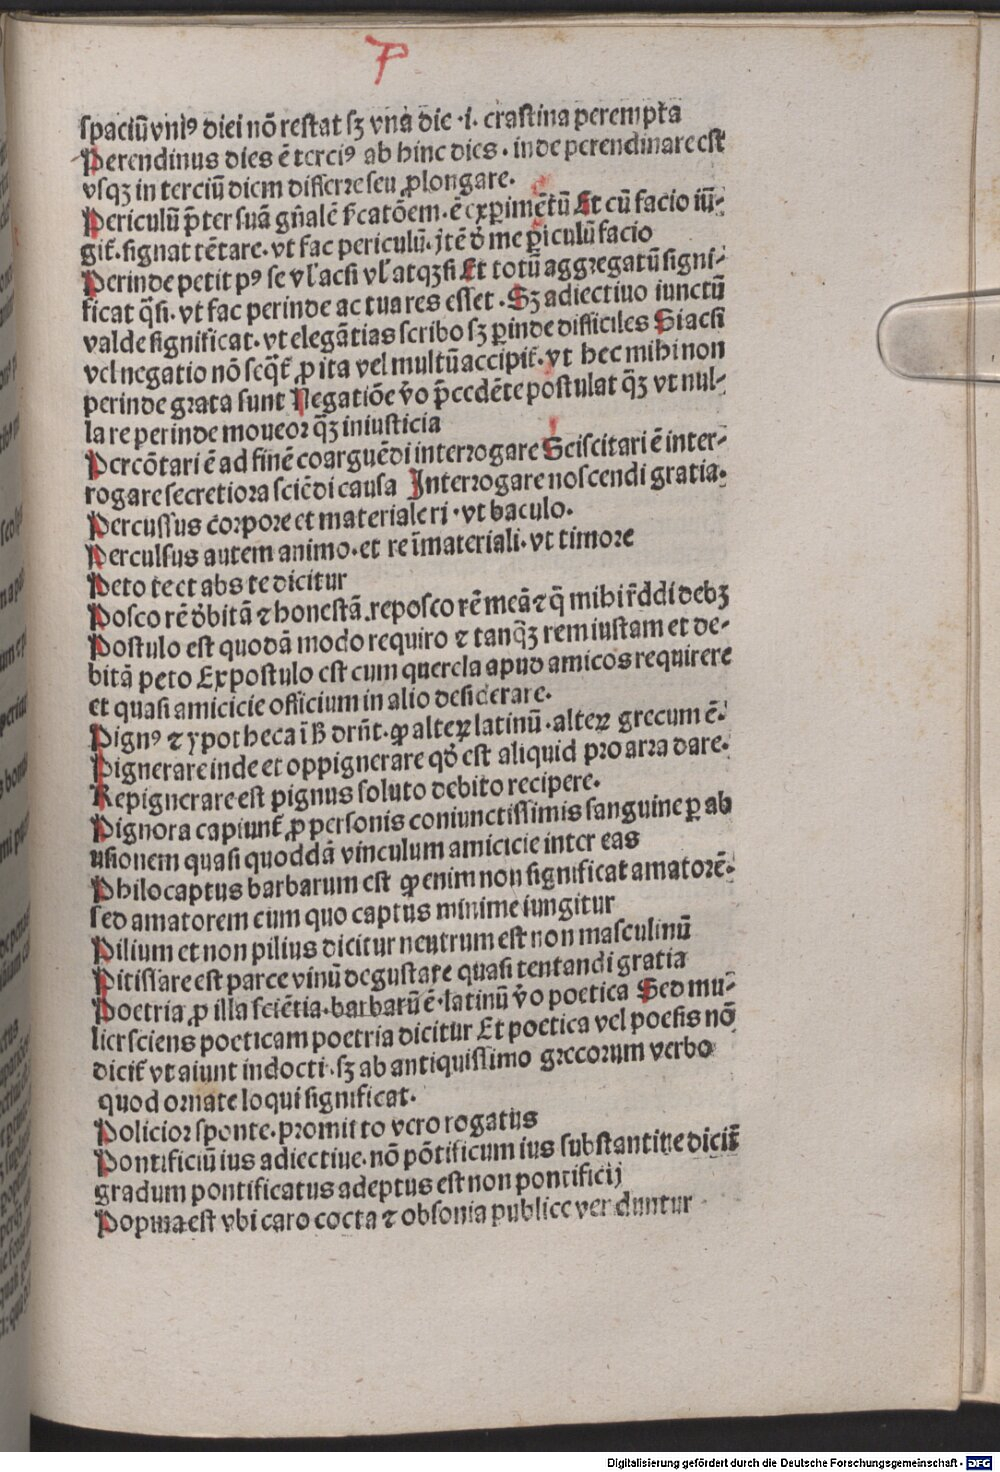 P
spaciū vniꝰ diei nō restat sꝫ vna die ·i· crastina perempta
Perendinus dies ē terciꝰ ab hinc dies · inde perendinare est
vsqꝫ in terciū diem differre seu ꝓlongare·
Periculū p̄ter suā gn̄alē ficatōem · ē exꝑimētū Et cū facio iū-
git̄· signat tētare· vt fac periculū· ꝑiculū facio
Perinde petit pꝰ se vl̓ acsi vl̓ atqꝫsi Et totū aggregatū signi-
ficat q̄si· vt fac perinde ac tua res esset · Sꝫ adiectiuo iunctū
valde significat· vt elegātias scribo sꝫ ꝑinde difficiles Si acsi
vel negatio nō seq̄t̄ ꝓ ita vel multū accipit̄· vt hec mihi non
perinde grata sunt Negatiōe v̄o p̄cedēte postulat q̄ꝫ vt nul-
la re perinde moueor q̄ꝫ iniusticia
Percōtari ē ad finē coarguēdi interrogare Sciscitari ē inter-
rogare secretiora sciēdi causa Interrogare noscendi gratia·
Percussus corpore et materiale ri · vt baculo·
Perculsus autem animo· et re īmateriali· vt timore
Peto te et abs te dicitur
Posco rē dʼbitā ⁊ honestā· reposco rē meā ⁊ q̄ mihi r̄ddi debꝫ
Postulo est quodā modo requiro ⁊ tanq̄ꝫ rem iustam et de-
bitā peto Expostulo est cum querela apud amicos requirere
et quasi amicicie officium in alio desiderare·
Pignꝰ ⁊ ypotheca ī ß drn̄t· ꝙ alteꝝ latinū · alteꝝ grecum ē·
Pignerare inde et oppignerare qdʼ est aliquid pro arra dare·
Repignerare est pignus soluto debito recipere·
Pignora capiunt̄ ꝓ personis coniunctissimis sanguine ꝑ ab
usionem quasi quoddā vinculum amicicie inter eas
Philocaptus barbarum est ꝙ enim non significat amatorē·
sed amatorem cum quo captus minime iungitur
Pilium et non pilius dicitur neutrum est non masculinū
Pitissare est parce vinū degustare quasi tentandi gratia
Poetria ꝓ illa sciētia· barbarū ē· latinū v̄o poetica Sed mu-
lier sciens poeticam poetria dicitur Et poetica vel poesis nō
dicit̄ vt aiunt indocti · sꝫ ab antiquissimo grecorum verbo
quod ornate loqui significat·
Policior sponte· promitto vero rogatus
Pontificiū ius adiectiue· nō pōtificum ius substantiue dicit̄
gradum pontificatus adeptus est non pontificij
Popina est vbi caro cocta ⁊ obsonia publice venduntur
Digitalisierung gefördert durch die Deutsche Forschungsgemeinschaft - DFG